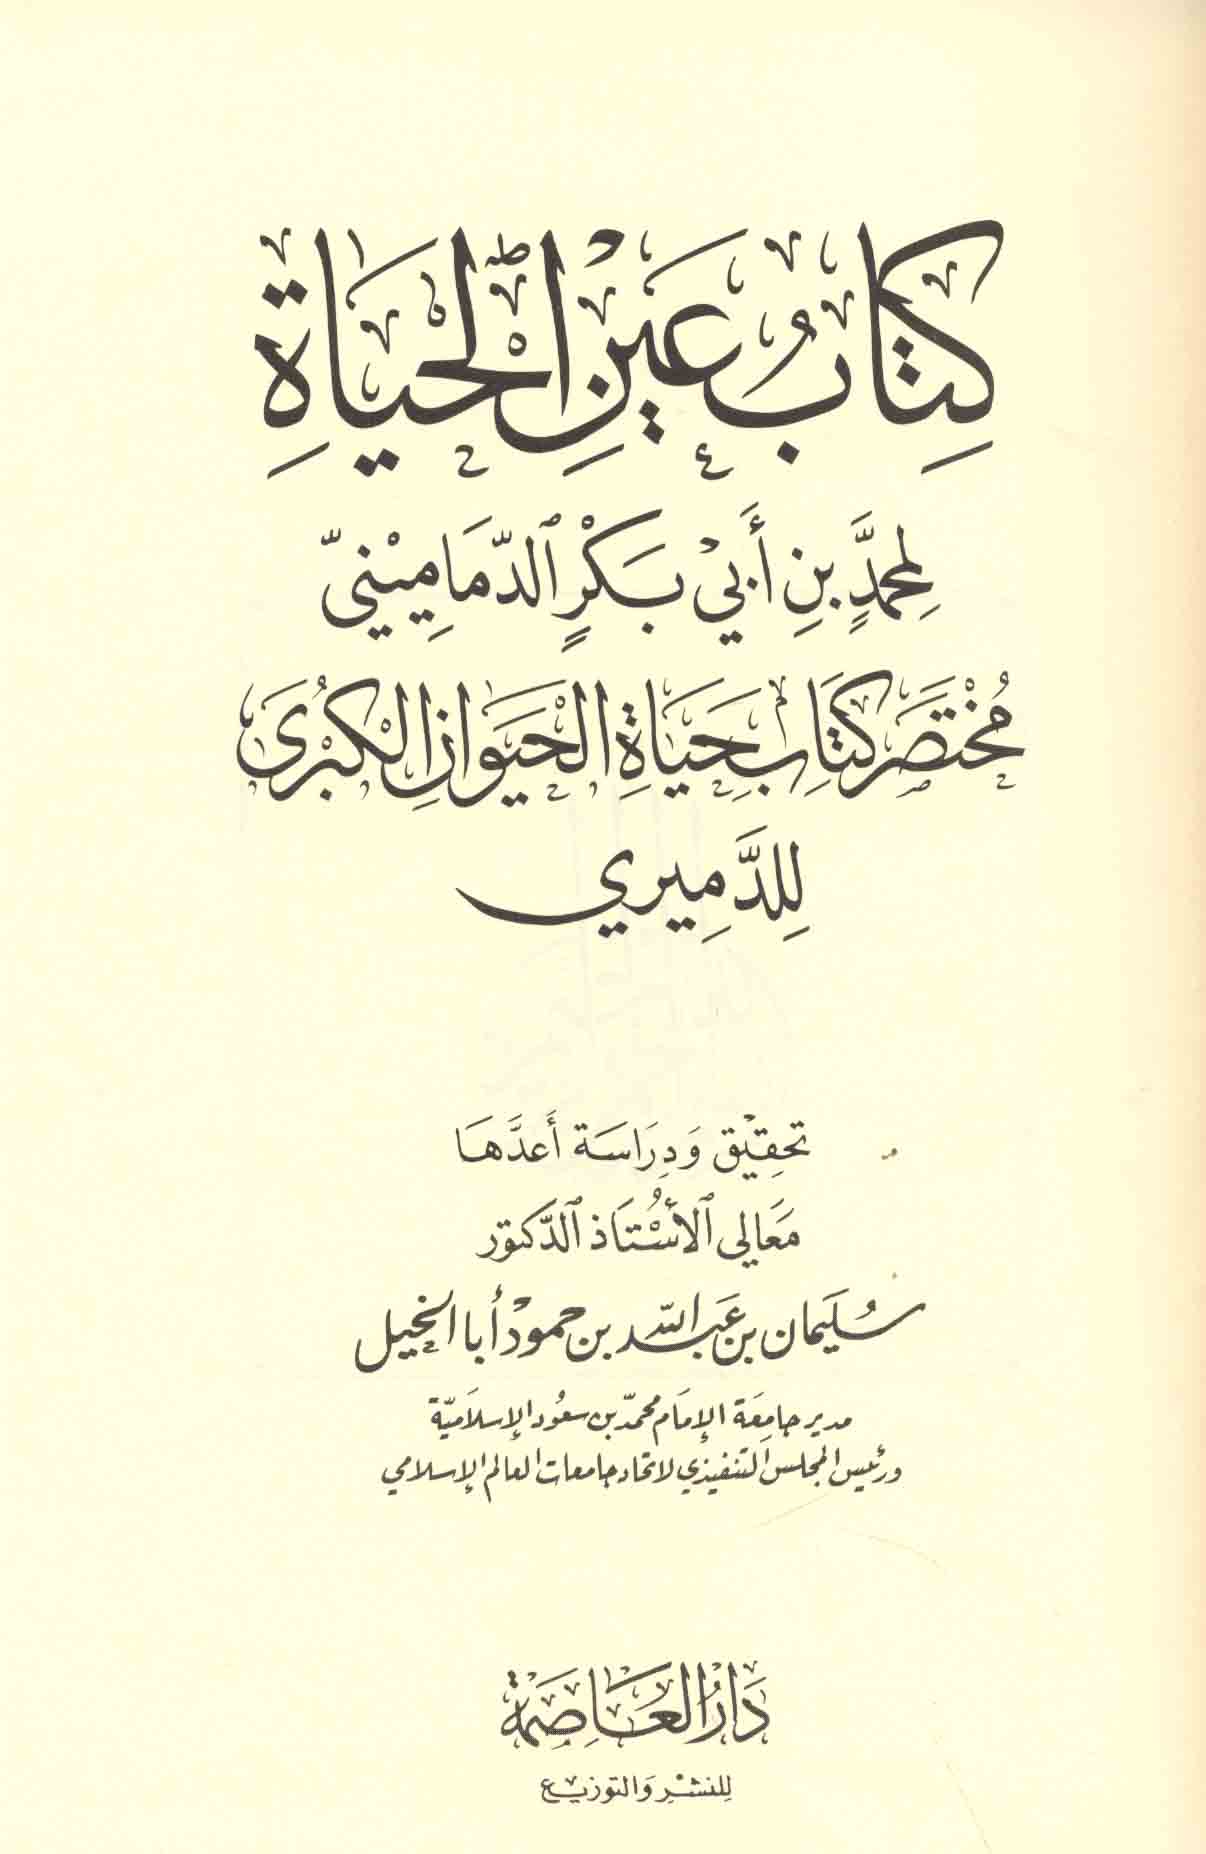 كِتَابُ عَيْنِ الْحَيَاةِ
لِمحمدٍ بنِ أَبي بَكْرٍ الدَّمَامِيْنيّ
مُخْتَصَر كِتَابِ حَيَاةِ الْحَيَوَانِ الْكُبْرَى
لِلدَّمِيري
تحقِيْق وَدِرَاسَة أَعدَّهَا
مَعَالي الأُسْتَاذ الدَّكتور
سُلَيمان بن عَبدالله بن حمود أبا الخيل
مدير جامِعَة الإمَام محمّد بن سعُود الإسلَاميّة
ورئيس المجلس التنفيذي لاتحاد جامعات العالم الإسلامي
دَارُ العَاصِمَة
لِلنشْرِ وَالتوزيْع